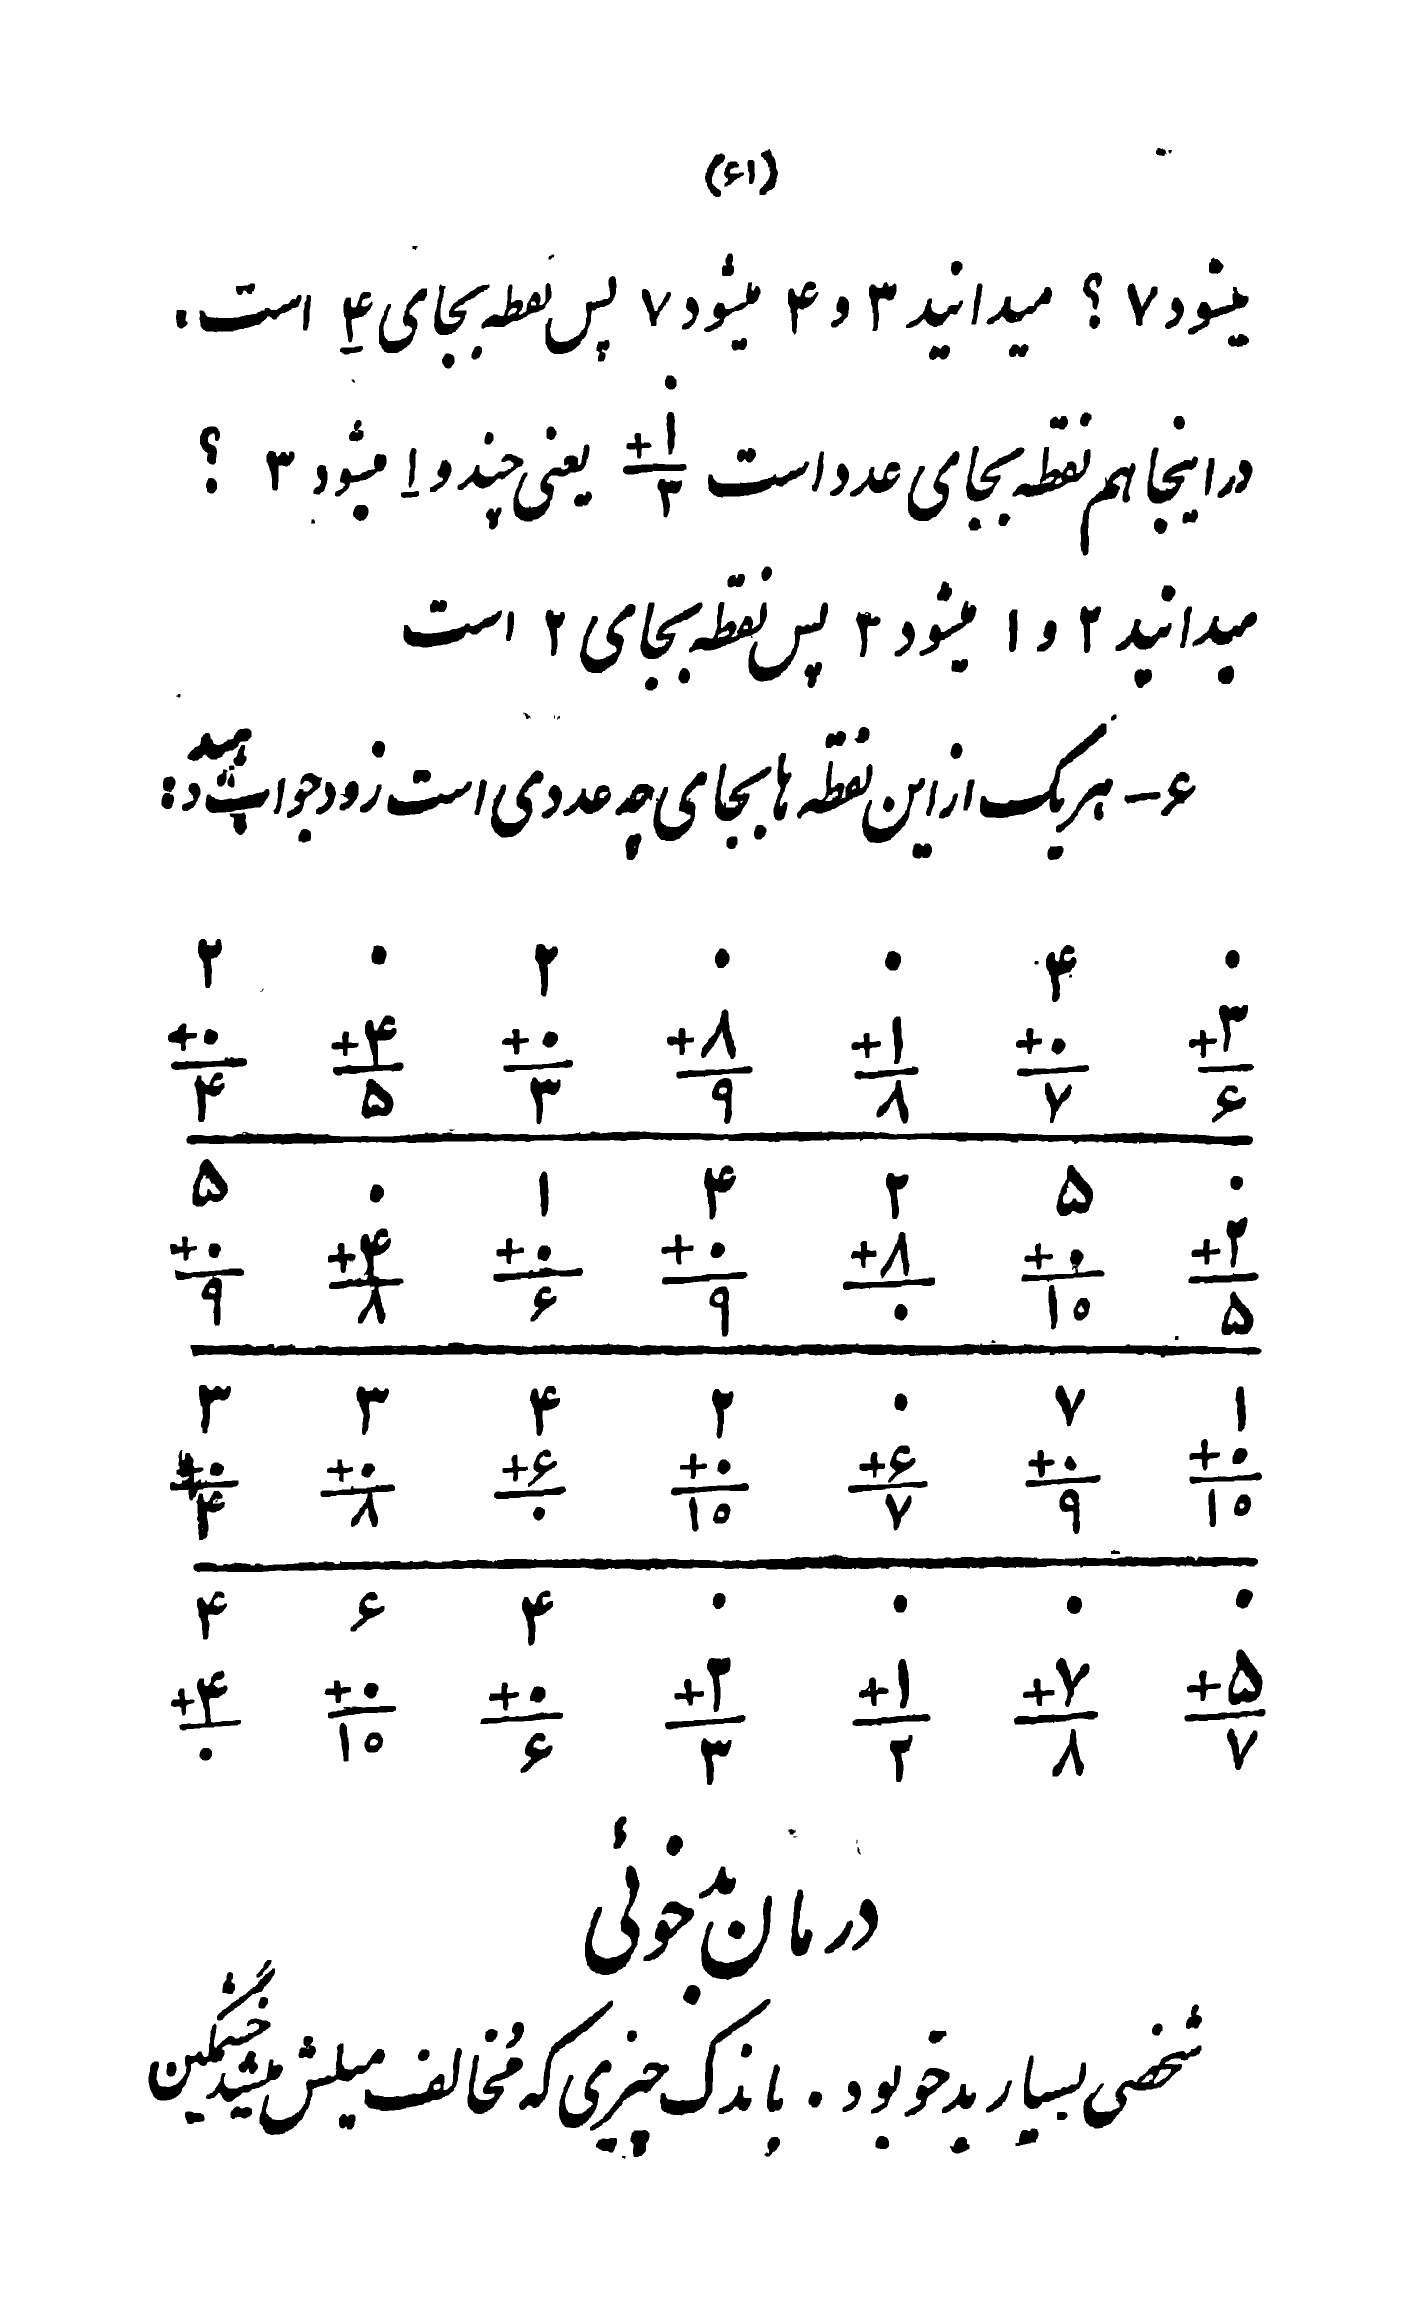 (۶۱)
میشود ۷ ؟ میدانید ۳ و ۴ میشود ۷ پس نقطه بجای ۴ است.
•
در اینجا هم نقطه بجای عدد است +۱ یعنی چند و ۱ میشود ۳ ؟
۳
میدانید ۲ و ۱ میشود ۳ پس نقطه بجای ۲ است
۶- هر یک از این نقطه ها بجای چه عددی است زود جواب بدهید:
• ۴ • • ۲ • ۲
+۳ +• +۱ +۸ +• +۴ +•
۶ ۷ ۸ ۹ ۳ ۵ ۴
• ۵ ۲ ۴ ۱ • ۵
+۲ +• +۸ +• +• +۴ +•
۵ ۱۰ • ۹ ۶ ۸ ۹
۱ ۷ • ۲ ۴ ۳ ۳
+• +• +۶ +• +۶ +• +•
۱۰ ۹ ۷ ۱۰ • ۸ ۴
• • • • ۴ ۶ ۴
+۵ +۷ +۱ +۲ +• +• +۴
۷ ۸ ۲ ۳ ۶ ۱۰ •
درمان بدخوئی
شخصی بسیار بدخو بود. باندک چیزی که مُخالف میلش میشد خشمگین